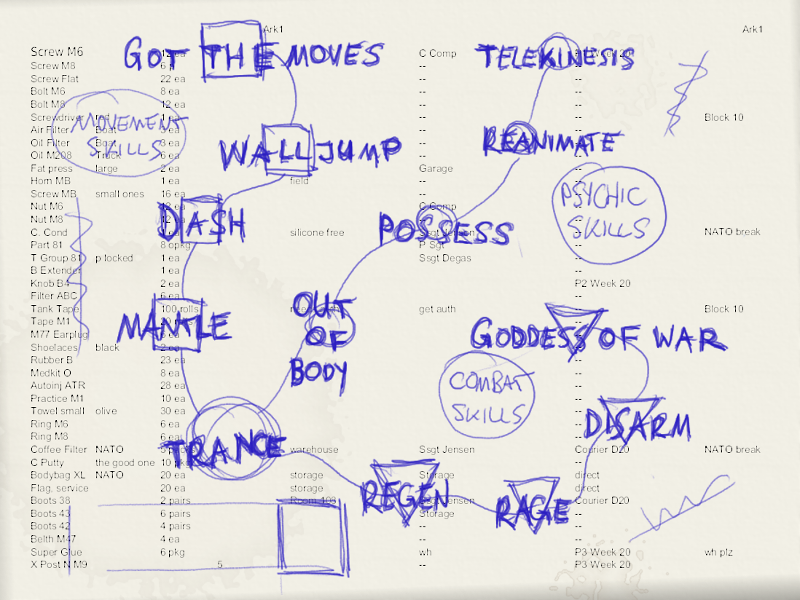 Ark1 Ark1
GOT THE MOVES
TELEKINESIS
Screw M6 C Comp
Screw M8 --
Screw Flat 22 ea --
Bolt M6 8 ea --
Bolt M8 12 ea --
Screwdriver Block 10
MOVEMENT
SKILLS
Air Filter Boat
REANIMATE
WALL JUMP
Oil Filter
Oil M208 Truck 6 ea --
Fat press large 2 ea Garage
Horn MB 1 ea field --
Screw MB small ones 16 ea --
PSYCHIC
SKILLS
Nut M6 C Comp
Nut M8
DASH
POSSESS
C. Cond silicone free NATO break
Part 81 8 opkg P Sgt
T Group 81 p locked 1 ea Ssgt Degas
B Extender 1 ea --
Knob B4 2 ea -- P2 Week 20
Filter ABC 6 ea --
OUT
OF
BODY
Tank Tape 100 rolls get auth Block 10
Tape M1 --
MANTLE
GODDESS OF WAR
M77 Earplug
Shoelaces black --
Rubber B 23 ea --
Medkit O 8 ea --
COMBAT
SKILLS
Autoinj ATR 28 ea --
Practice M1 10 ea --
Towel small olive 30 ea --
Ring M6 6 ea --
DISARM
Ring M8 --
Coffee Filter NATO warehouse Ssgt Jensen Courier D20 NATO break
TRANCE
C Putty the good one --
Bodybag XL NATO 20 ea storage Storage direct
Flag, service 20 ea storage direct
REGEN
Boots 38 2 pairs Courier D20
RAGE
Boots 43 6 pairs Storage
Boots 42 4 pairs --
Belth M47 4 ea --
Super Glue 6 pkg wh P3 Week 20 wh plz
X Post N M9 5 -- P3 Week 20